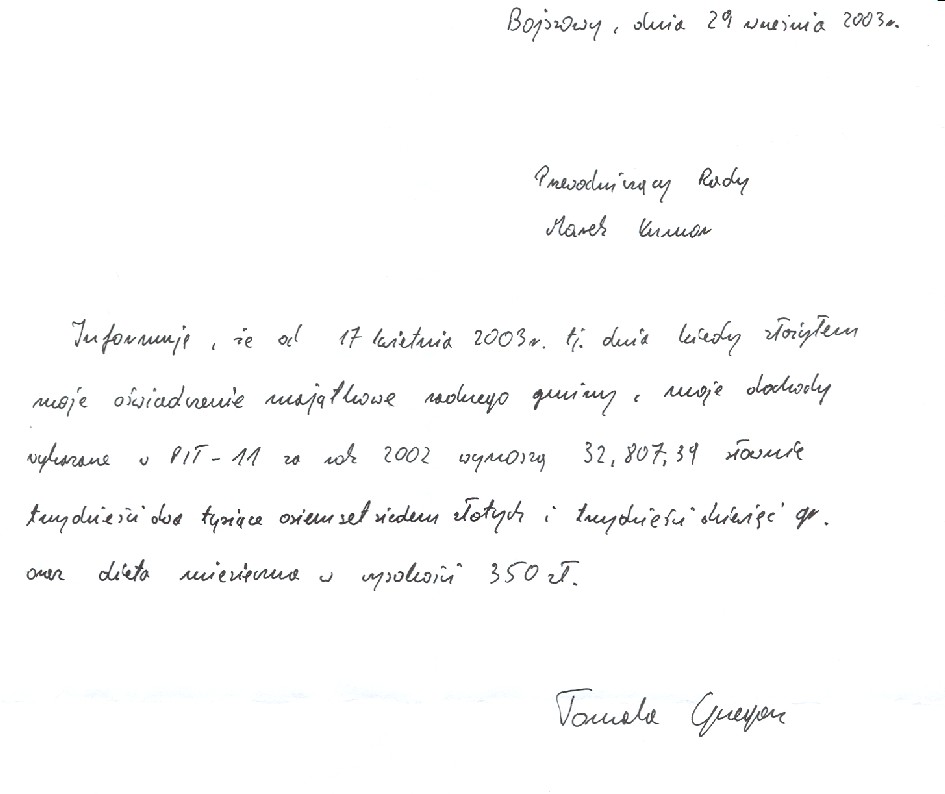 Bojszowy, dnia 29 września 2003r.
Przewodniczący Rady
Marek Kumor
Informuję, że od 17 kwietnia 2003r. tj. dnia kiedy złożyłem
moje oświadczenie majątkowe radnego gminy, moje dochody
wykazane w PIT-11 za rok 2002 wynoszą 32,807,39 słownie
trzydzieści dwa tysiące osiemset siedem złotych i trzydzieści dziewięć gr.
oraz dieta miesięczna w wysokości 350 zł.
Tomala Grzegorz